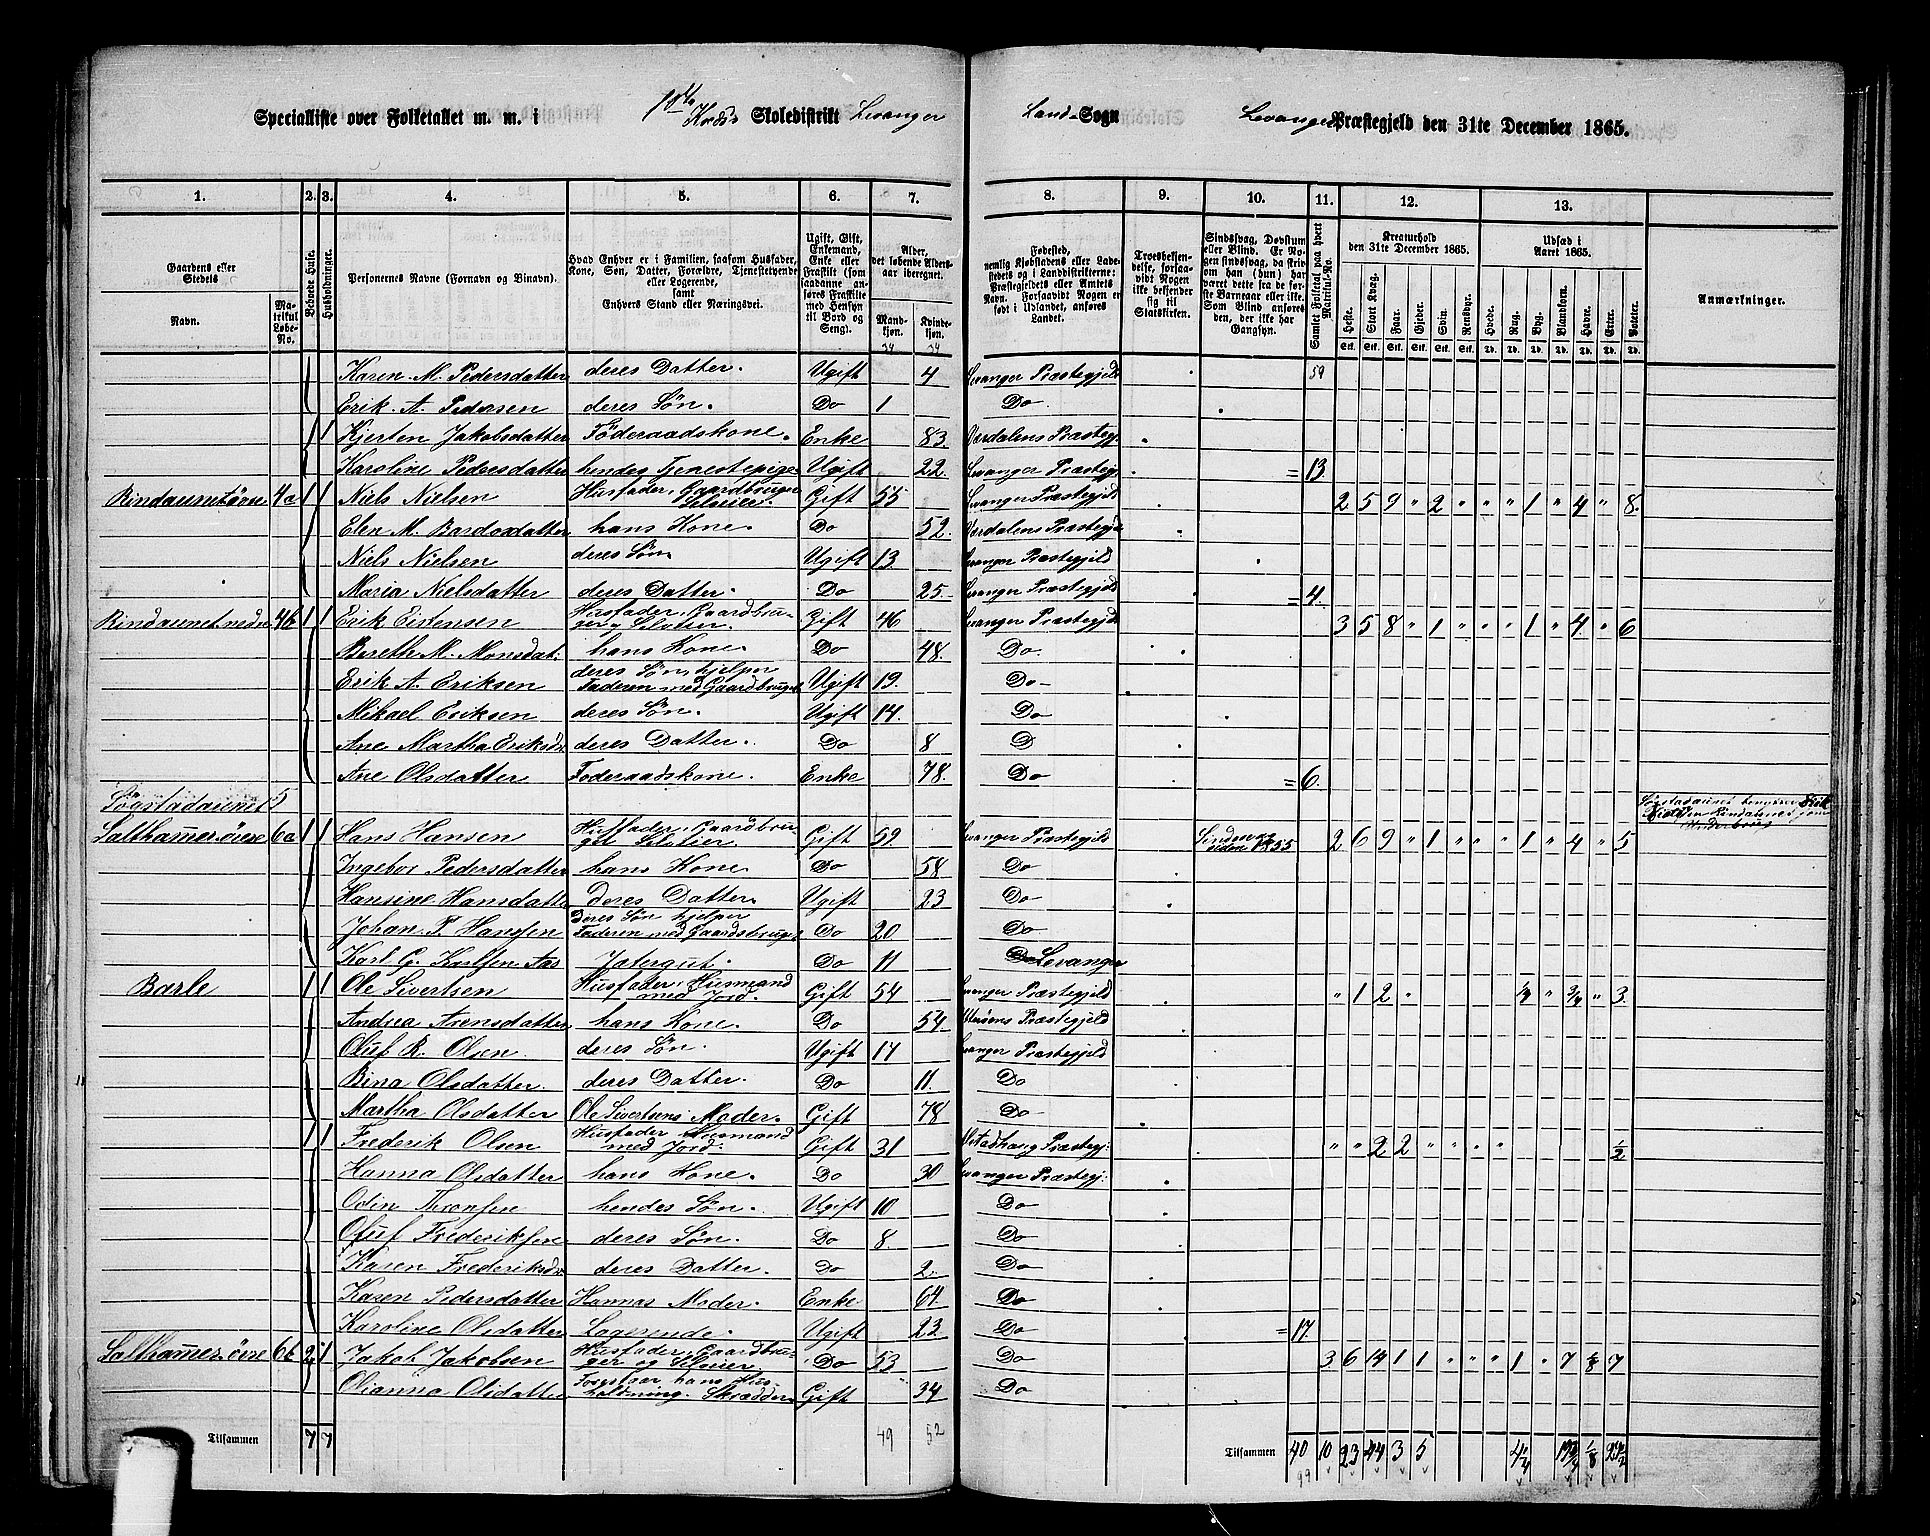 Specialliste over Folketallet m. m. i 1ste Kreds Skoledistrikt Levanger Land-Sogn Levanger Præstegjeld den 31te December 1865.
1. 2. 3. 4. 5. 6. 7. 8. 9. 10. 11. 12. 13.
Gaardens eller Stedets Navn. Matrikul Løbe-No.
Beboede Huse.
Husholdninger.
Personernes Navne (Fornavn og Binavn).
Hvad Enhver er i Familien, saasom Husfader, Kone, Søn, Datter, Forældre, Tjenestetyende eller Logerende, samt Enhvers Stand eller Næringsvei.
Ugift, Gift, Enkemand, Enke eller Fraskilt (som saadanne anføres Fraskilte med Hensyn til Bord og Seng).
Alder, det løbende Aldersaar iberegnet. Mandkjøn. Kvindekjøn.
Fødested, nemlig Kjøbstadens eller Ladestedets og i Landdistrikterne: Præstegjeldets eller Amtets Navn. Forsaavidt Nogen er født i Udlandet, anføres Landet.
Troesbekjendelse, forsaavidt Nogen ikke bekjender sig til Statskirken.
Sindssvag, Døvstum eller Blind. Er Nogen sindssvag, da skrives om han (hun) har været dette fra de første Barneaar eller ikke. Som Blind anføres den, der ikke har Gangsyn.
Samlet Folketal paa hvert Matrikul-No.
Kreaturhold den 31te December 1865. Heste. Stort Kvæg. Faar. Gjeder. Svin. Rensdyr.
Udsæd i Aaret 1865. Hvede. Rug. Byg. Blandkorn. Havre. Erter. Poteter.
Anmærkninger.
34 34
Karen M. Pedersdatter deres Datter. Ugift 4 Levanger Præstegjeld 59
Erik A. Pedersen deres Søn. Do 1 Do.
1 1 Kjersten Jakobsdatter Føderaadskone. Enke 83. Værdalens Præstegj.
Karoline Pedersdatter hendes Tjenestepige Ugift 22. Levanger Præstegj = 13.
Rindaunetøvre 4a 1 1 Niels Nielsen Husfader, Gaardbruger Selveier. Gift 55 Levanger Præstegjeld 2 5 9 " 2 " " " 1 " 4 " 8.
Elen M. Bardosdatter hans Kone. Do 52. Værdalens Præstegje
Niels Nielsen deres Søn Ugift 13. Levanger Præstegjeld
Maria Nielsdatter deres Datter. Do 25. Levanger Præstegjeld = 4.
Rindaunet nedre 4b 1 1 Erik Eistensen Husfader, Gaardbruger Selveier. Gift 46 Levanger Præstegjeld 3 5 8 " 1 " " " 1 " 4 " 6
Bereth M. Monsdat. hans Kone. Do 48. Do.
Erik A. Eriksen deres Søn, hjelper Faderen med Gaardbruget Ugift 19. Do-
Mikael Eriksen deres Søn. Ugift 14. Do
Ane Martha Eriksdr. deres Datter. Do 8 D
Ane Olsdatter Føderaadskone. Enke 78. Do = 6.
Søgstadaunet 5
Salthammer øvre 6a 1 1 Hans Hansen Husfader, Gaardbruger Selveier Gift 59. Levanger Præstegjeld Sindssvag siden 1855 2 6 9 " 1 " " " 1 " 4 " 5
Ingebor Pedersdatter hans Kone Do 58 Do
Hansine Hansdatter Deres Datter. Ugift 23 Do
Johan P. Hansen Deres Søn hjelper Faderen med Gaardsbruget Do 20 Do
Karl G. Karlsen Aas Jætergut. Do 11 Levanger
Barle 1 1 Ole Sivertsen Husfader, Husmand med Jord. Gift 54 Levanger Præstegjeld " 1 2 " 1/4 " 3/4 " 3.
Andrea Arensdatter hans Kone. Do 54. Præstegjeld
Oluf R. Olsen. deres Søn. Ugift 14 Levanger Præstegjeld
Bina Olsdatter. deres Datter. Do 11. Do
Martha Olsdatter Ole Sivertsens Moder. Gift 78 Do
1 1 Frederik Olsen Husfader, Husmand med Jord. Gift 31 Præstegj: " " 2 2 " " " " 1/2
Hanna Olsdatter hans Kone. Do 30 Levanger Præstegj:
Odin Thronsen hendes Søn. Ugift 10 Do
Oluf Frederiksen deres Søn. Do 8. Do
Karen Frederiksdr deres Datter. Do 2. Do
Karen Pedersdatter Hannas Moder. Enke 64 Do
Karoline Olsdatter Logerende. Ugift 23. Do = 17.
Salthammer øvre 6b 2 1 Jakob Jakobsen Husfader, Gaardbruger og Selveier. Do 53. Do 3 6 14 1 1 " " " 1 " 7 1/8 7
Olianna Olsdatter Forestaar hans Husholdning. Gift 34 Do
Tilsammen 7 7 49 52 Tilsammen 40 10 23 44 3 5
99